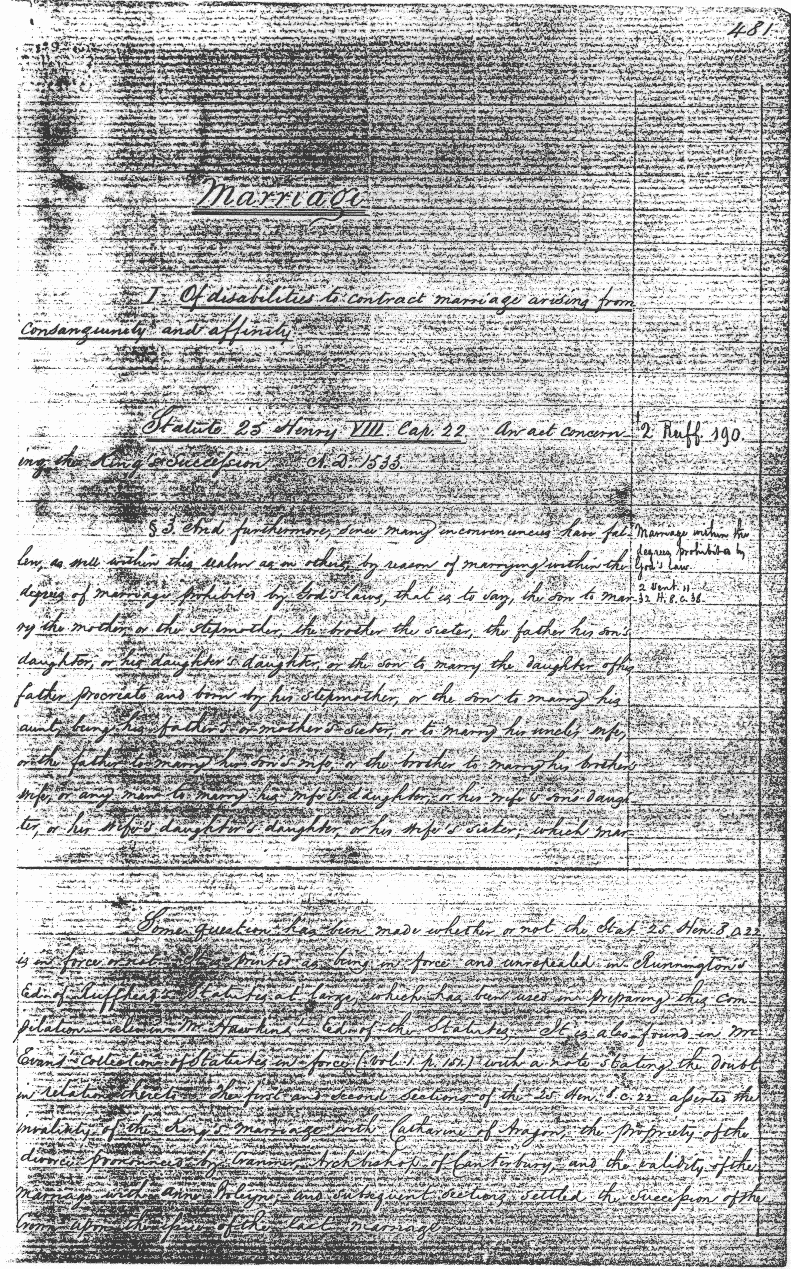 481
Marriage
I Of disabilities to contract marriage arising from
consanguinity and affinity
Statute 25 Henry VIII Cap. 22 An act concern-
ing the King's Succession A.D. 1533.
2 Ruff. 190.
§ 3. And furthermore, since many inconveniencies have fal-
len, as well within this realm as in others, by reason of marrying within the
degrees of marriage prohibited by God's laws, that is to say, the son to mar-
ry the mother, or the stepmother, the brother the sister, the father his son's
daughter, or his daughter's daughter, or the son to marry the daughter of his
father procreate and born by his stepmother, or the son to marry his
aunt, being his father's or mother's sister, or to marry his uncle's wife,
or the father to marry his son's wife, or the brother to marry his brother's
wife, or any man to marry his wife's daughter, or his wife's son's daugh-
ter, or his wife's daughter's daughter, or his wife's sister; which mar-
Marriage within the
degrees prohibited by
God's law.
2 Vent. 11
32 H. 8. c. 38.
Some question has been made whether or not the Stat. 25 Hen. 8. c. 22
is in force or not. It is printed as being in force and unrepealed in Runnington's
Ed. of Ruffhead's Statutes at large, which has been used in preparing this com-
pilation in Mr. Hawkins' Ed. of the Statutes. It is also found in Mr
Evans' Collections of Statutes in force (Vol. 1. p. ) with a note stating the doubt
in relation thereto. The first and second sections of the 25 Hen. 8. c. 22 asserted the
invalidity of the King's marriage with Catharine of Aragon, the propriety of the
divorce pronounced by Cranmer, Archbishop of Canterbury, and the validity of the
marriage with Anne Boleyn; and subsequent sections settled the succession of the
crown upon the issue of the last marriage